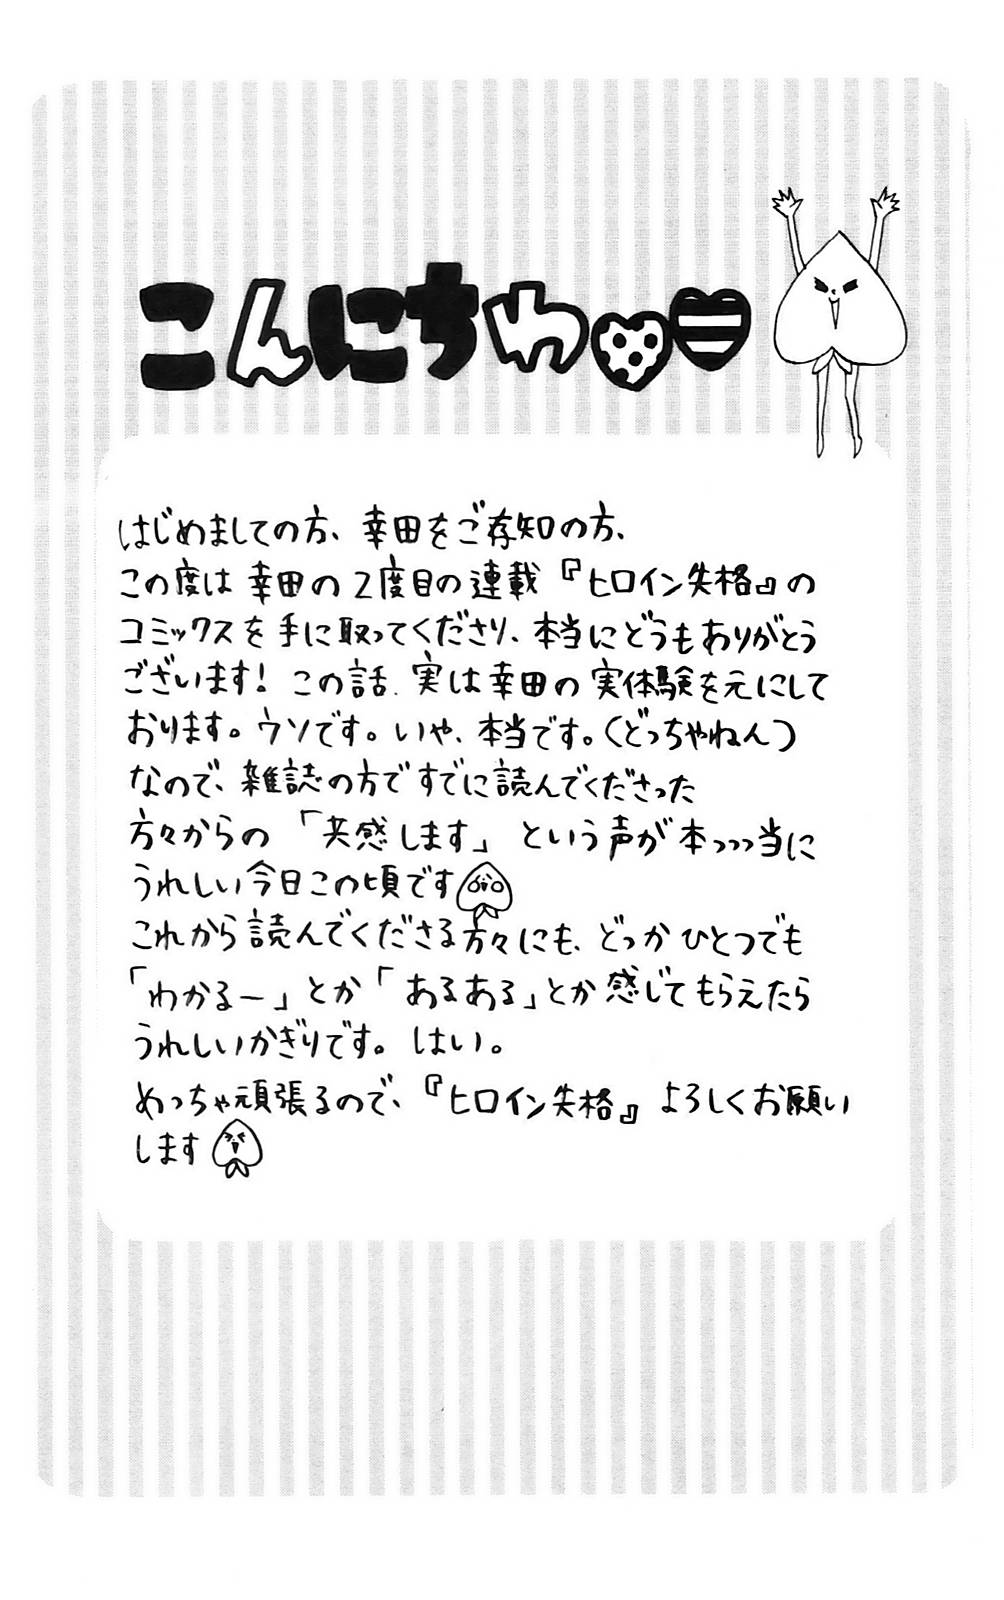 こんにちわ
はじめましての方、幸田をご存知の方、
この度は幸田の2度目の連載『ヒロイン失格』の
コミックスを手に取ってくださり、本当にどうもありがとう
ございます! この話、実は幸田の実体験を元にして
おります。ウソです。いや、本当です。(どっちやねん)
なので、雑誌の方ですでに読んでくださった
方々からの「共感します」という声が本っっっ当に
うれしい今日この頃です
これから読んでくださる方々にも、どっかひとつでも
「わかるー」とか「あるある」とか感じてもらえたら
うれしいかぎりです。はい。
めっちゃ頑張るので、『ヒロイン失格』よろしくお願い
します